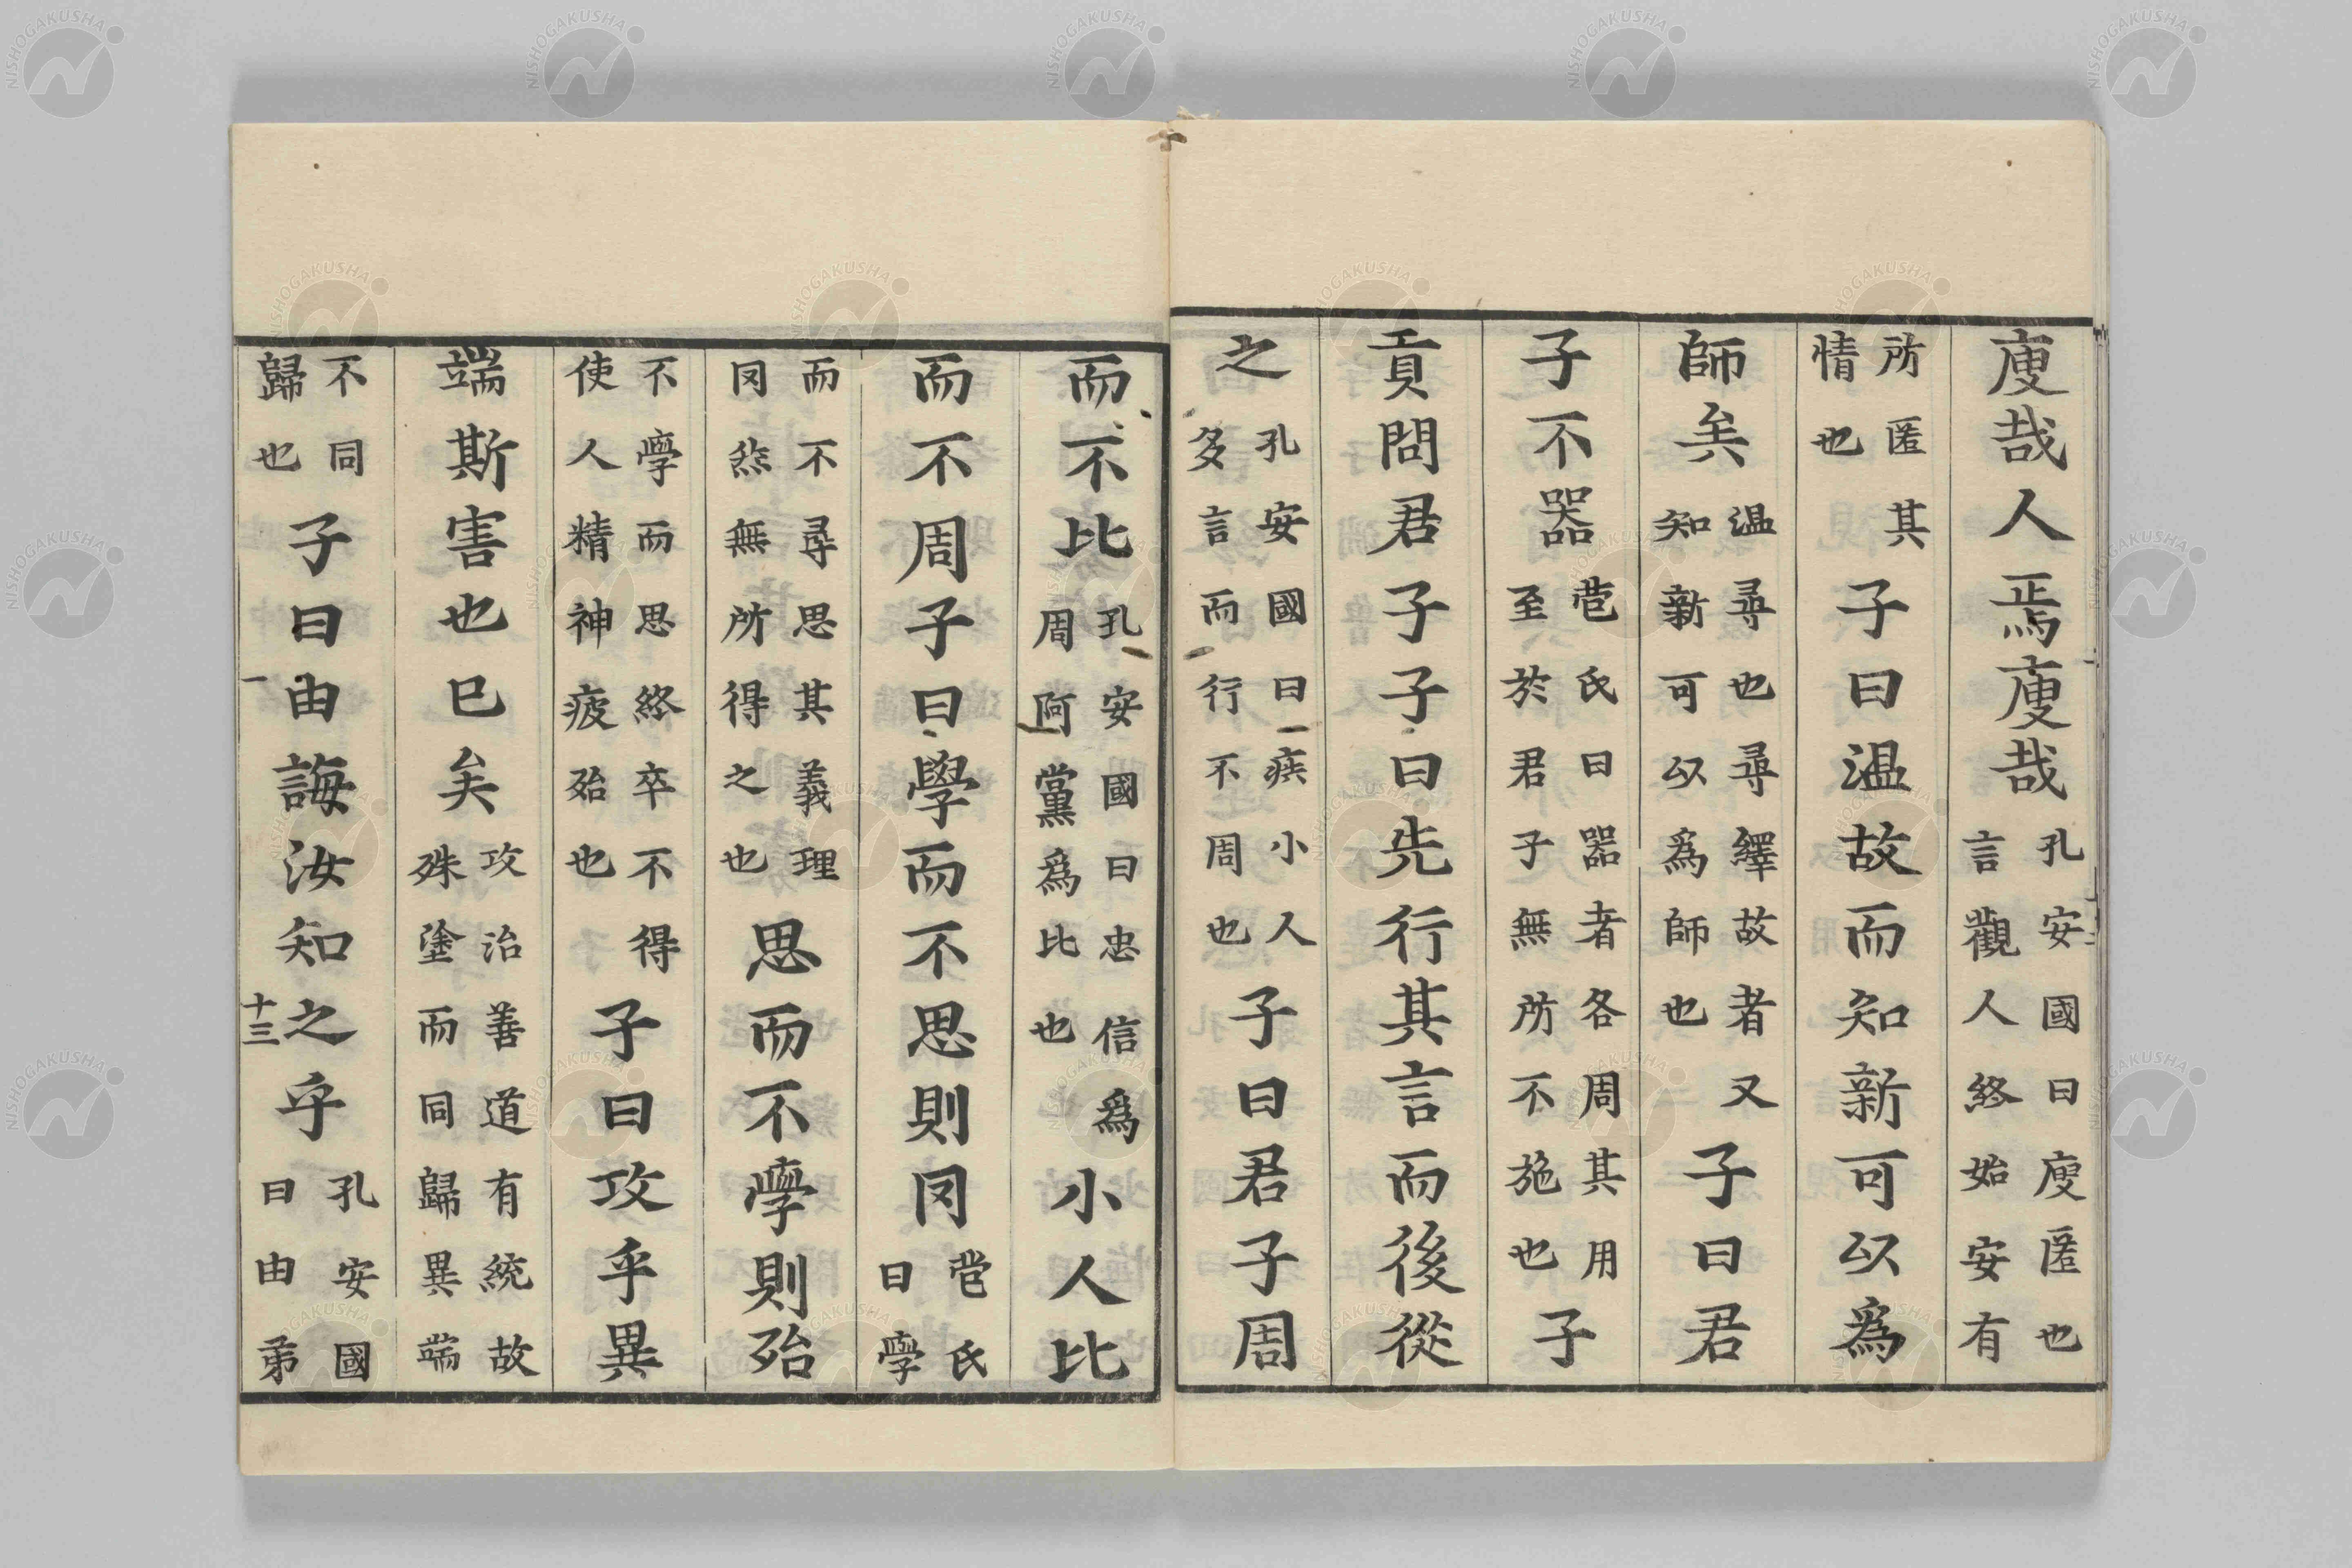 廋哉人焉廋哉孔安國曰廋匿也言觀人終始安有
所匿其情也子曰温故而知新可以爲
師矣温尋也尋繹故者又知新可以爲師也子曰君
子不器苞氏曰器者各周其用至於君子無所不施也子
貢問君子子曰先行其言而後從
之孔安國曰疾小人多言而行不周也子曰君子周
而不比孔安國曰忠信爲周阿黨爲比也小人比
而不周子曰學而不思則罔苞氏曰學
而不尋思其義理罔然無所得之也思而不學則殆
不學而思終卒不得使人精神疲殆也子曰攻乎異
端斯害也已矣攻治善道有統故殊塗而同歸異端
不同歸也子曰由誨汝知之乎孔安國曰由弟
一
十三
NISHOGAKUSHA